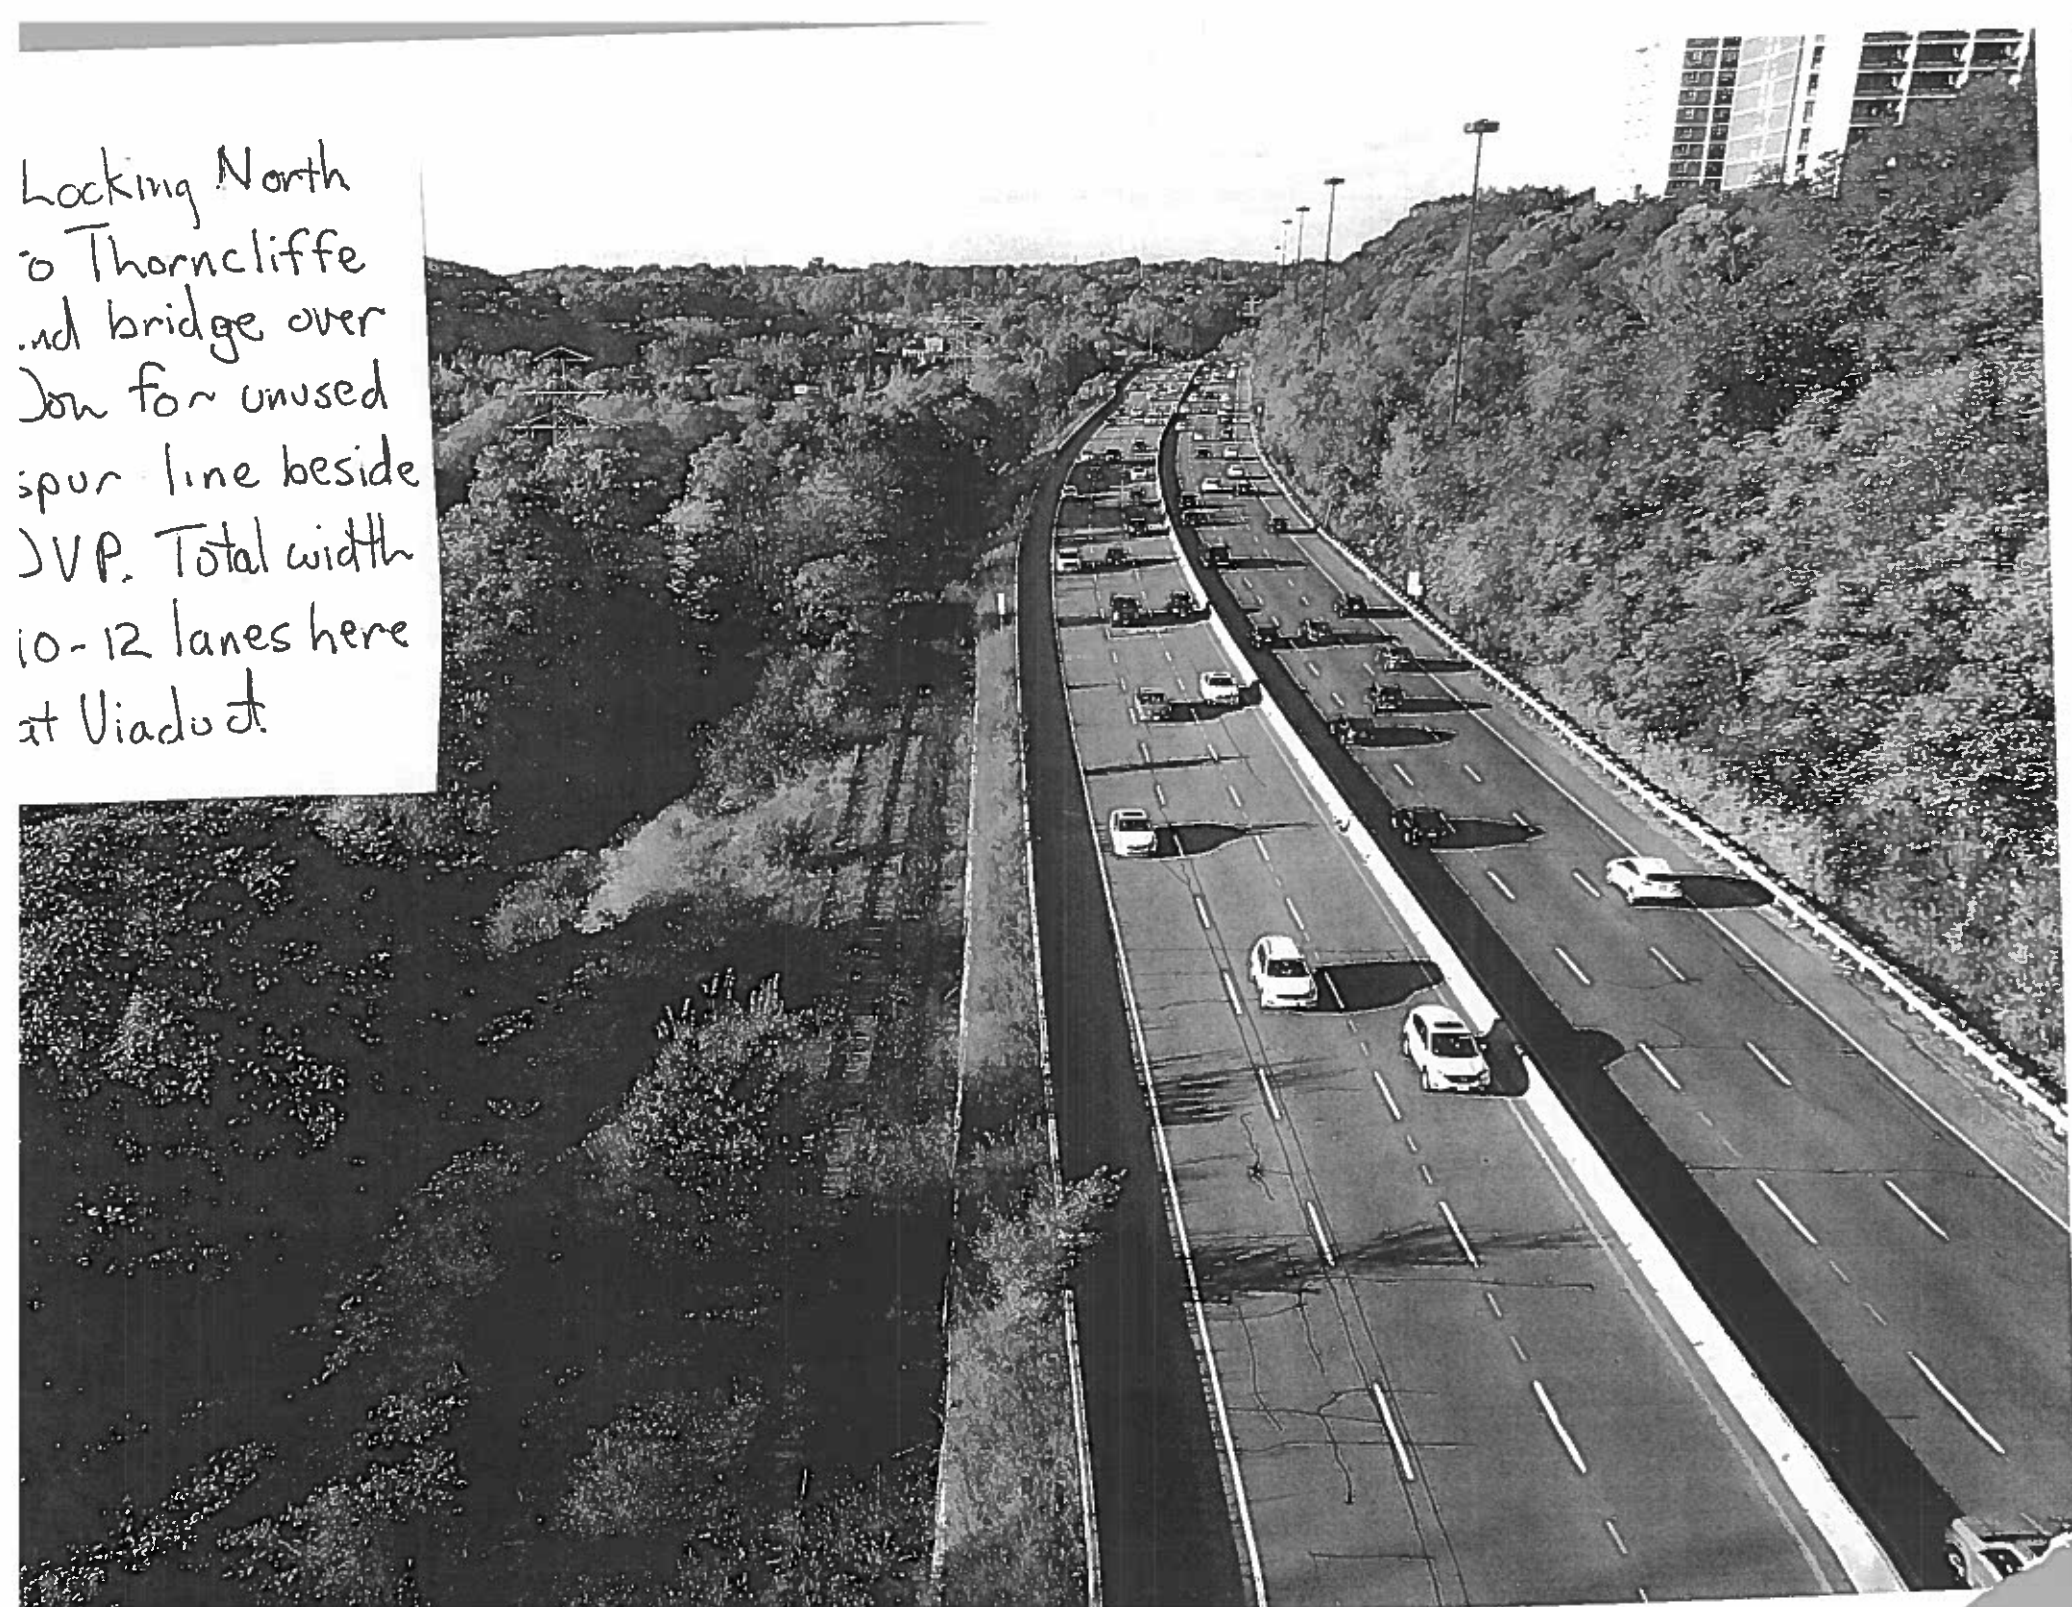 Looking North
to Thorncliffe
and bridge over
Don for unused
spur line beside
DVP. Total width
10-12 lanes here
at Viaduct.